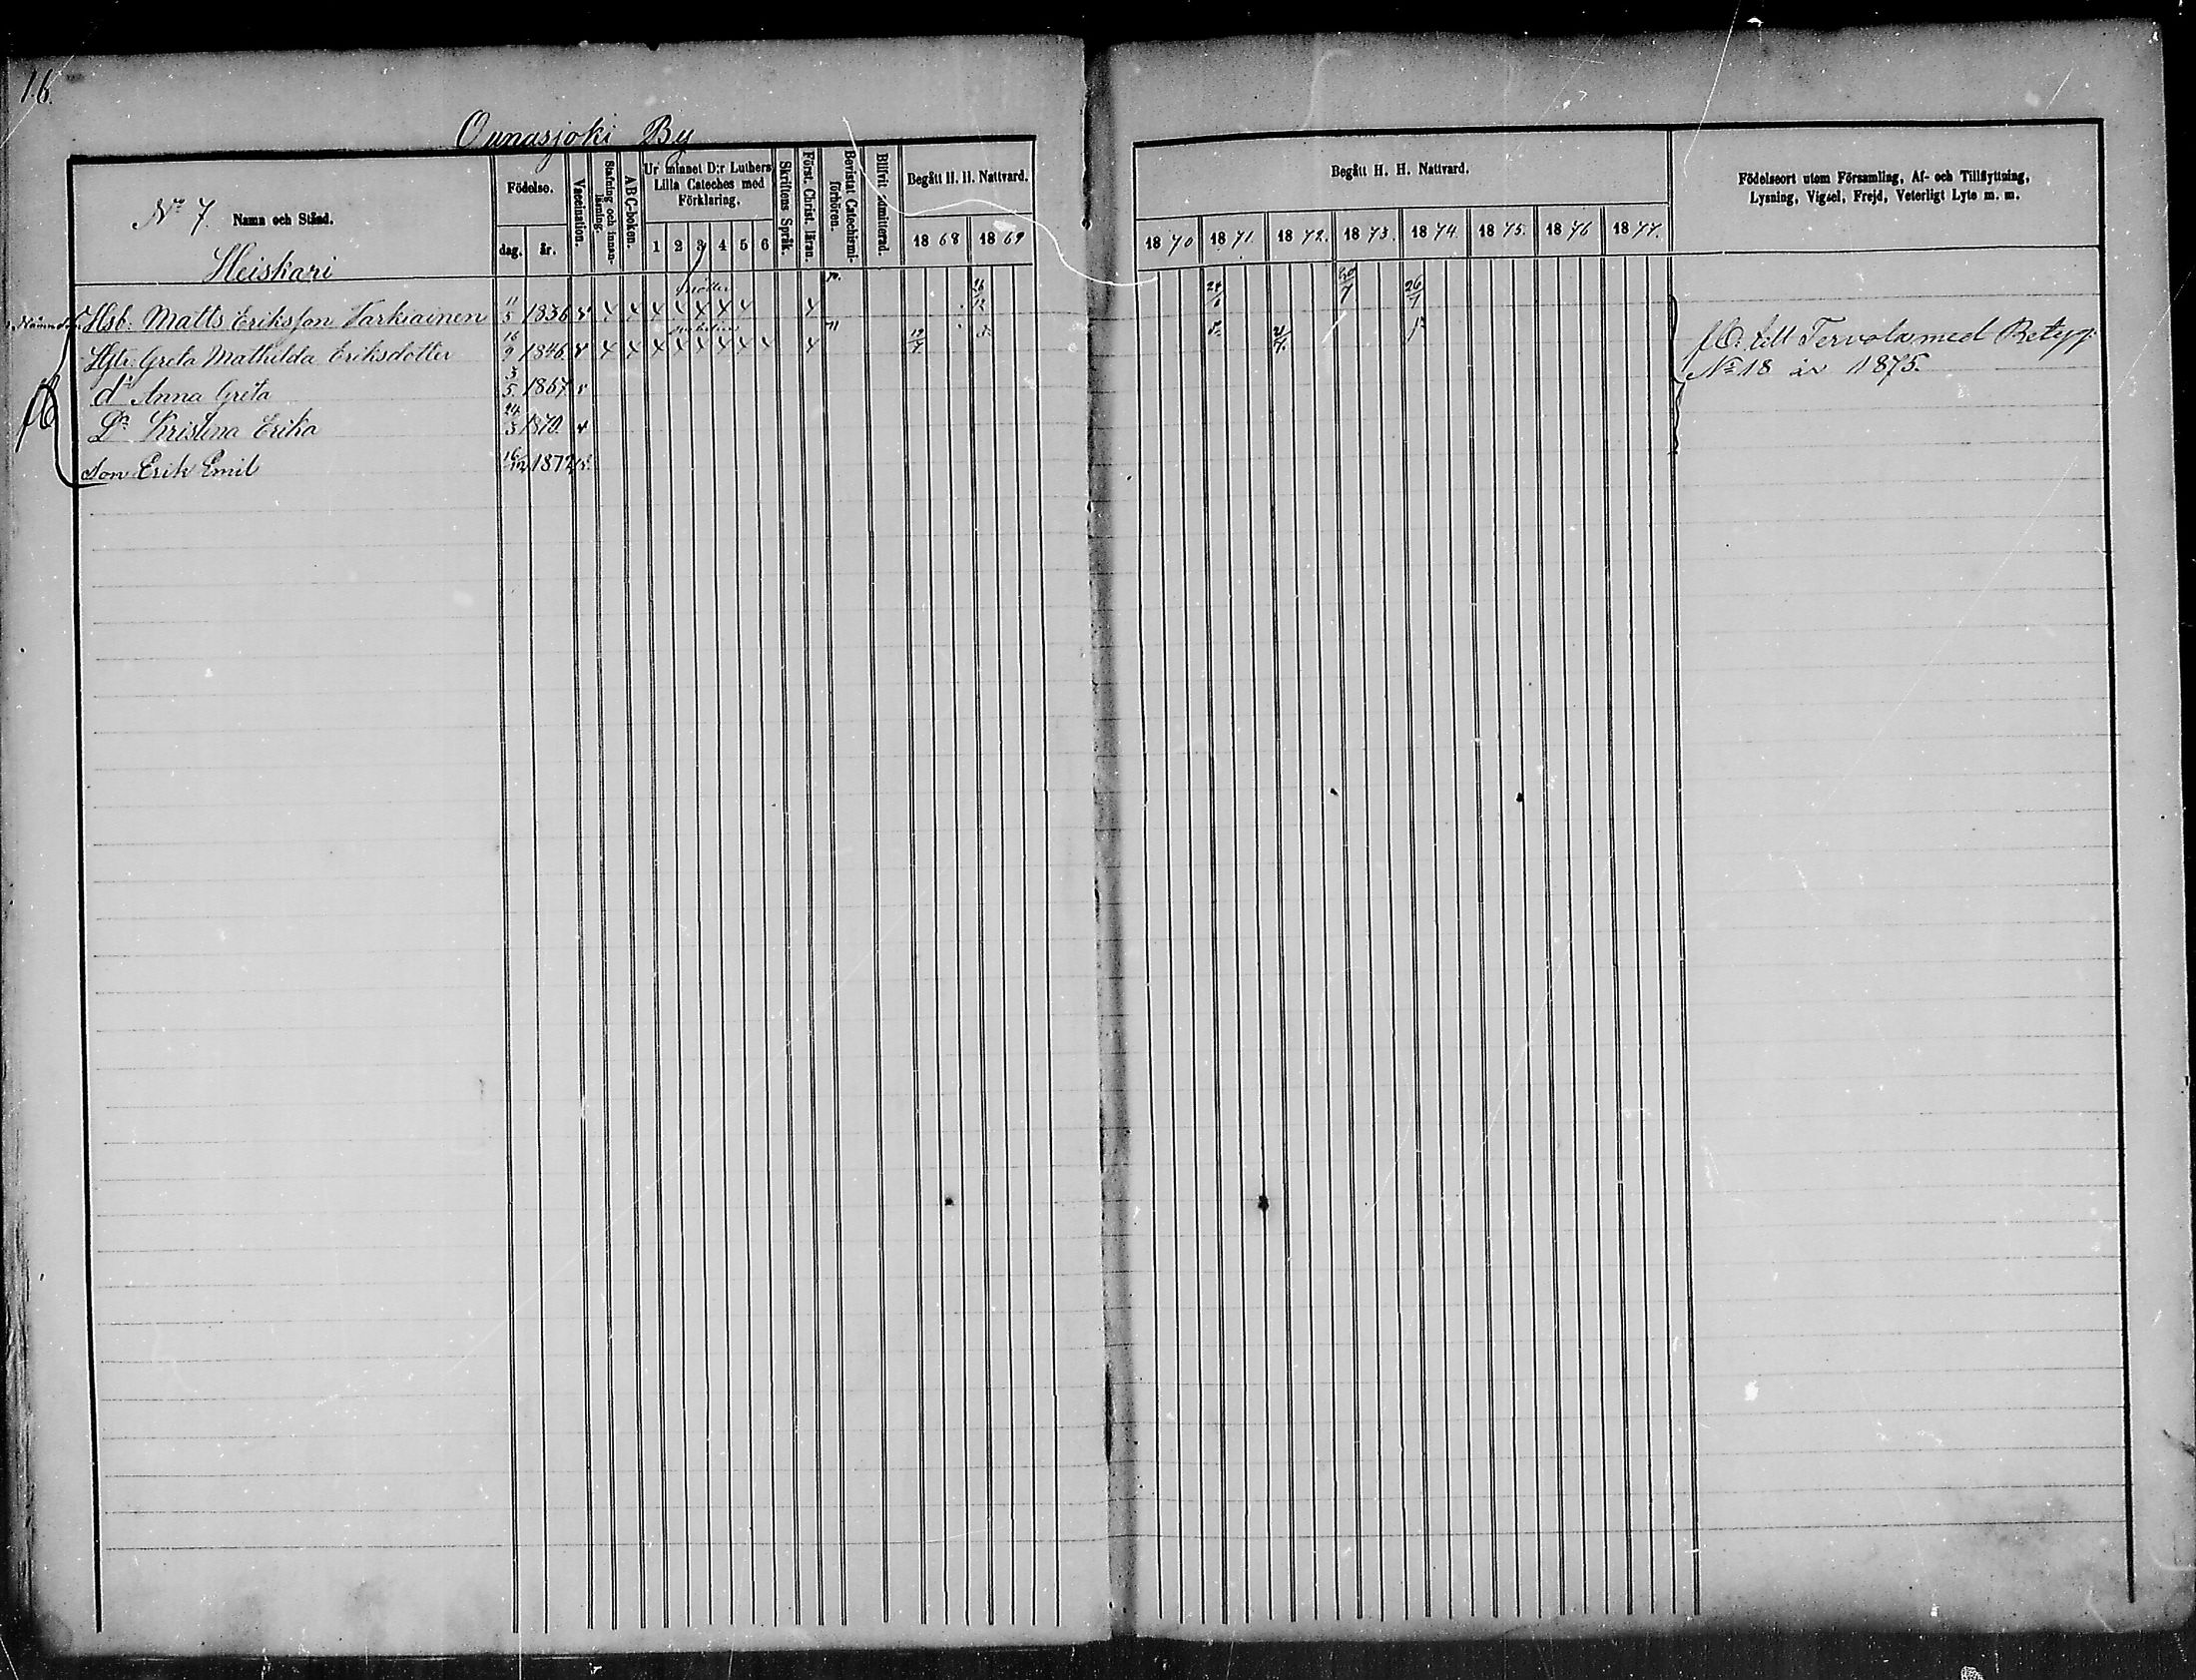 16.
Ounasjoki By
No 7. Namn och Stånd.
Födelse.
dag. år.
Vaccination.
Stafning och innanläsning.
A B C-boken.
Ur minnet D:r Luthers Lilla Cateches med Förklaring.
1 2 3 4 5 6
Skriftens Språk.
Först. Christ. läran.
Bevistat Catechismiförhören.
Blifvit admitterad.
Begått H. H. Nattvard.
18 68 18 69
Begått H. H. Nattvard.
18 70 18 71. 18 72. 18 73. 18 74. 18 75. 18 76 18 77.
Födelseort utom Församling, Af- och Tillflyttning,
Lysning, Vigsel, Frejd, Veterligt Lyte m. m.
Heiskari
Hsb. Matts Eriksson Tarkiainen 11/5 1836
Greta Mathilda Eriksdotter 16/9 1846
dr Anna Greta 3/5 1867
Dr Kristina Erika 24/3 1870
Son Erik Emil 16/12 1872
till Tervola med Betyg
No 18 år 1875.